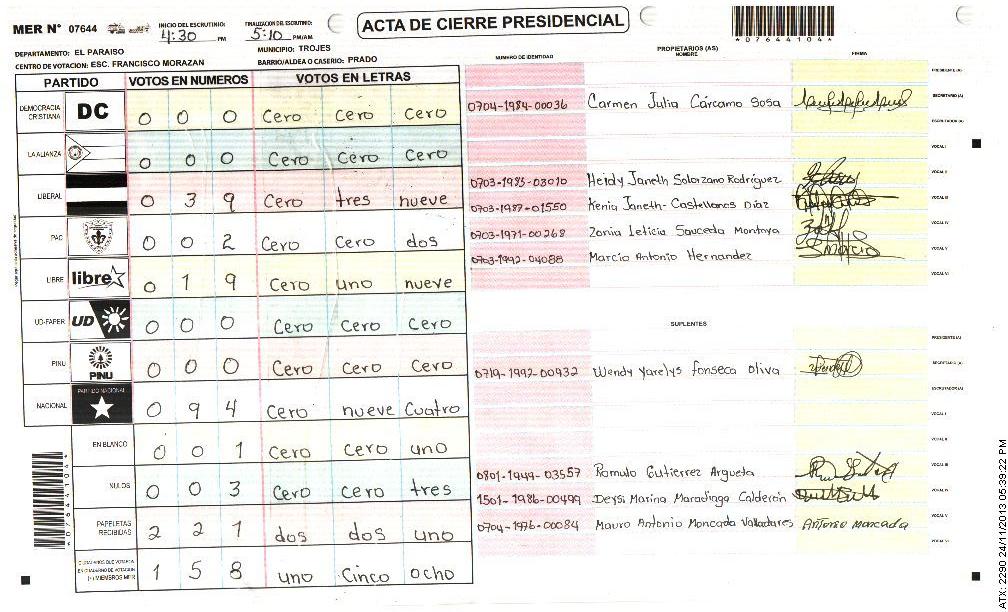 MER N° 07644 INICIO DEL ESCRUTINIO: 4:30 PM FINALIZACION DEL ESCRUTINIO: 5:10 PM/AM
ACTA DE CIERRE PRESIDENCIAL
*07644104*
DEPARTAMENTO: EL PARAISO MUNICIPIO: TROJES
CENTRO DE VOTACION: ESC. FRANCISCO MORAZAN BARRIO/ALDEA O CASERIO: PRADO
PARTIDO VOTOS EN NUMEROS VOTOS EN LETRAS
DEMOCRACIA CRISTIANA DC 0 0 0 Cero Cero Cero
LA ALIANZA 0 0 0 Cero Cero Cero
LIBERAL 0 3 9 Cero tres nueve
PAC 0 0 2 Cero Cero dos
LIBRE libre 0 1 9 Cero uno nueve
UD-FAPER UD 0 0 0 Cero Cero Cero
PINU PINU 0 0 0 Cero Cero Cero
NACIONAL PARTIDO NACIONAL 0 9 4 Cero nueve Cuatro
EN BLANCO 0 0 1 Cero Cero uno
NULOS 0 0 3 Cero Cero tres
PAPELETAS RECIBIDAS 2 2 1 dos dos uno
CIUDADANOS QUE VOTARON EN CUADERNO DE VOTACION (+) MIEMBROS MER 1 5 8 uno Cinco ocho
NUMERO DE IDENTIDAD PROPIETARIOS (AS) NOMBRE FIRMA
PRESIDENTE (A)
0704-1984-00036 Carmen Julia Cárcamo Sosa SECRETARIO (A)
ESCRUTADOR (A)
VOCAL I
0703-1985-03010 Heidy Janeth Solorzano Rodríguez VOCAL II
0703-1987-01550 Kenia Janeth Castellanos Díaz VOCAL III
0703-1971-00268 Zonia Leticia Sauceda Montoya VOCAL IV
0703-1992-04088 Marcio Antonio Hernandez VOCAL V
VOCAL VI
SUPLENTES
PRESIDENTE (A)
0719-1992-00932 Wendy Yarelys Fonseca Oliva SECRETARIO (A)
ESCRUTADOR (A)
VOCAL I
VOCAL II
0801-1949-03557 Romulo Gutierrez Argueta VOCAL III
1501-1986-00499 Deysi Marina Maradiaga Calderón VOCAL IV
0704-1976-00084 Mauro Antonio Moncada Valladares Antonio moncada VOCAL V
VOCAL VI
*07644104*
ATX: 2290 24/11/2013 05:39:22 PM